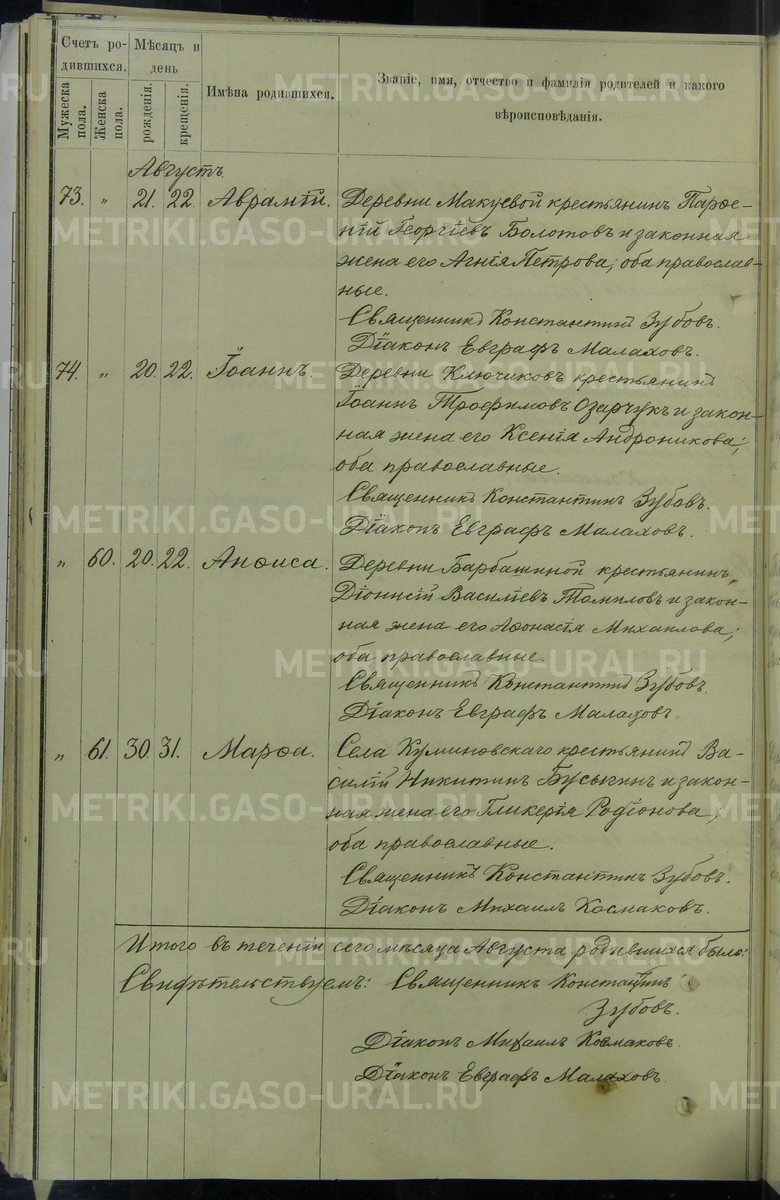 Счетъ ро-
дившихся.
Мѣсяцъ и
день
Мужеска
пола.
Женска
пола.
рожденія.
крещенія.
Имѣна родившихся.
Званіе, имя, отчество и фамилія родителей и какого
вѣроисповѣданія.
Августъ
73. „ 21. 22. Аврамій. Деревни Макуевой крестьянинъ Парѳе-
ній Георгіевъ Болотовъ и законная
жена его Агнія Петрова, оба православ-
ные.
Священникъ Константинъ Зубовъ.
Діаконъ Евграфъ Малаховъ.
74. „ 20. 22. Іоаннъ Деревни Ключиковъ крестьянинъ
Іоаннъ Трофимовъ Озарчукъ и закон-
ная жена его Ксенія Андроникова,
оба православные.
Священникъ Константинъ Зубовъ.
Діаконъ Евграфъ Малаховъ.
„ 60. 20. 22. Анѳиса. Деревни Барбашиной крестьянинъ
Діонисій Василіевъ Томиловъ и закон-
ная жена его Аѳонасія Михаилова,
оба православные.
Священникъ Константинъ Зубовъ.
Діаконъ Евграфъ Малаховъ.
„ 61. 30. 31. Марѳа. Села Куминовскаго крестьянинъ Ва-
силій Никитинъ Бусыгинъ и закон-
ная жена его Гликерія Родіонова,
оба православные.
Священникъ Константинъ Зубовъ.
Діаконъ Михаилъ Космаковъ.
Итого въ теченіи сего мѣсяца Августа родившихся было:
Свидѣтельствуемъ: Священникъ Константинъ
Зубовъ.
Діаконъ Михаилъ Космаковъ.
Діаконъ Евграфъ Малаховъ.
METRIKI.GASO-URAL.RU